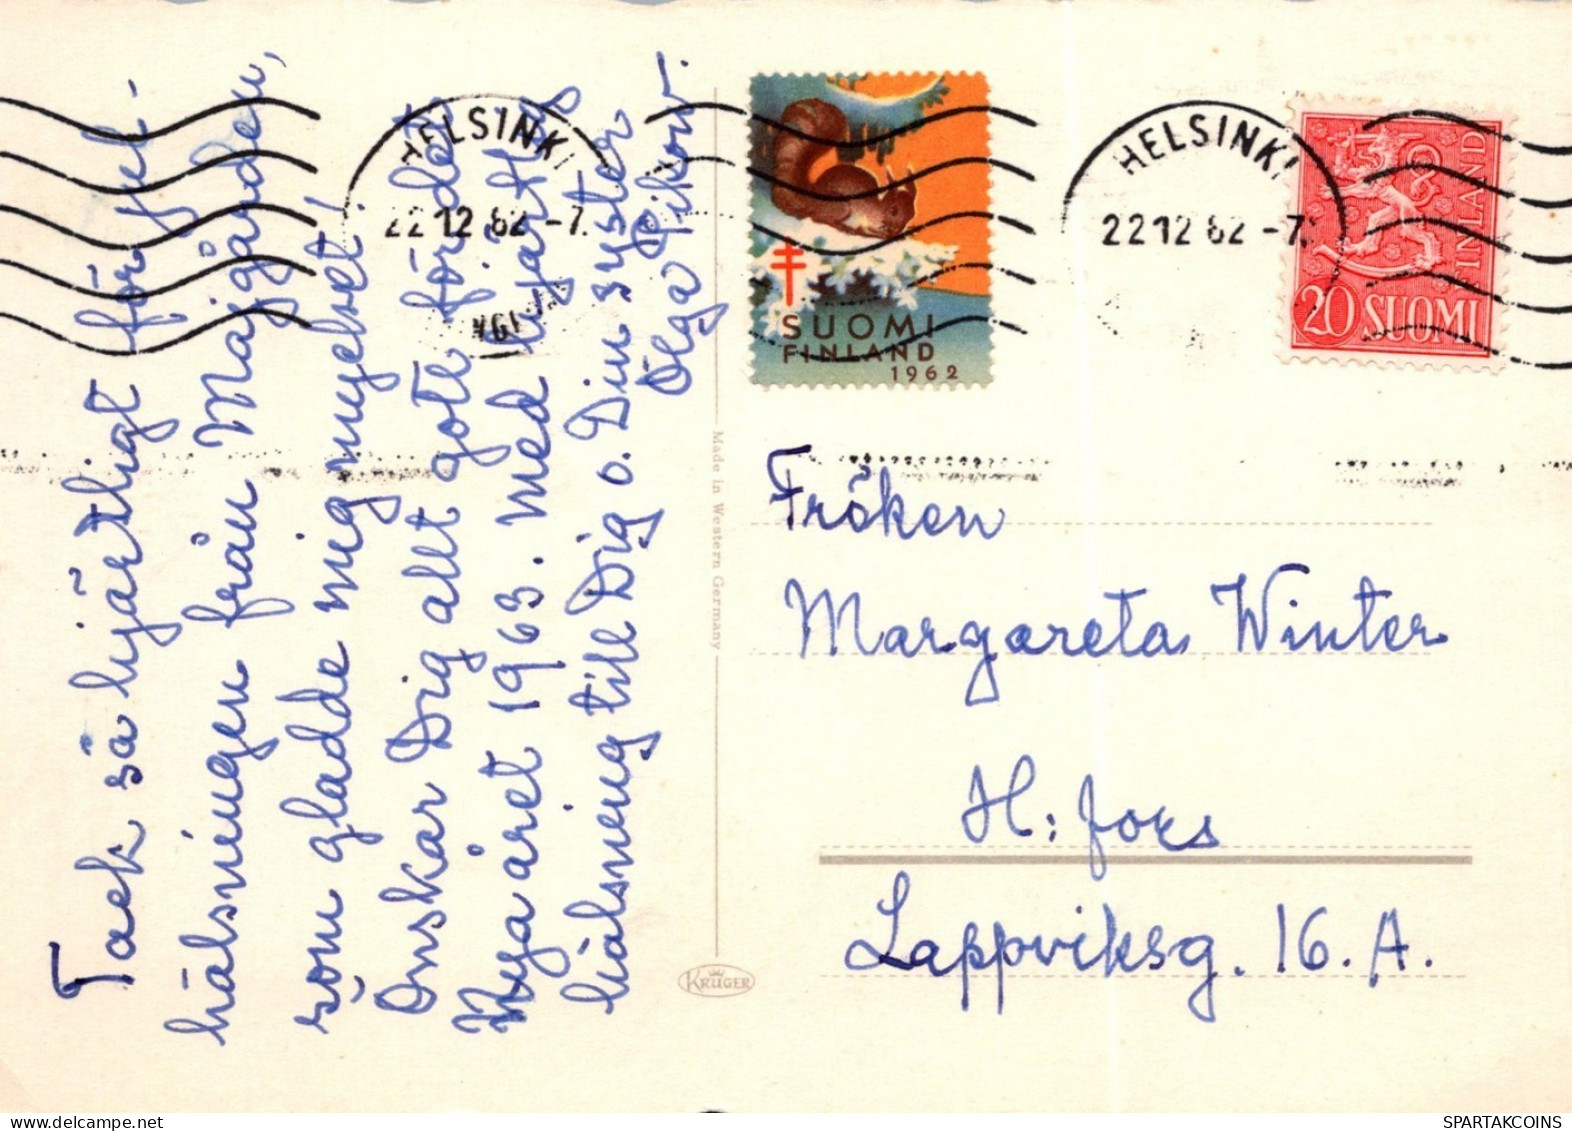 Tack så hjärtligt för jul-
hälsningen från Majgården,
som gladde mig mycket!
Önskar Dig allt gott för det
Nya året 1963. Med hjärtlig
hälsning till Dig o. Din syster
Olga
HELSINKI
22 12 62 -7.
SUOMI
FINLAND
1962
HELSINKI
22 12 62 -7.
FINLAND
20 SUOMI
Made in Western Germany
KRÜGER
Fröken
Margareta Winter
H:fors
Lappviksg. 16. A.
SPARTAKCOINS
SPARTAKCOINS.COM